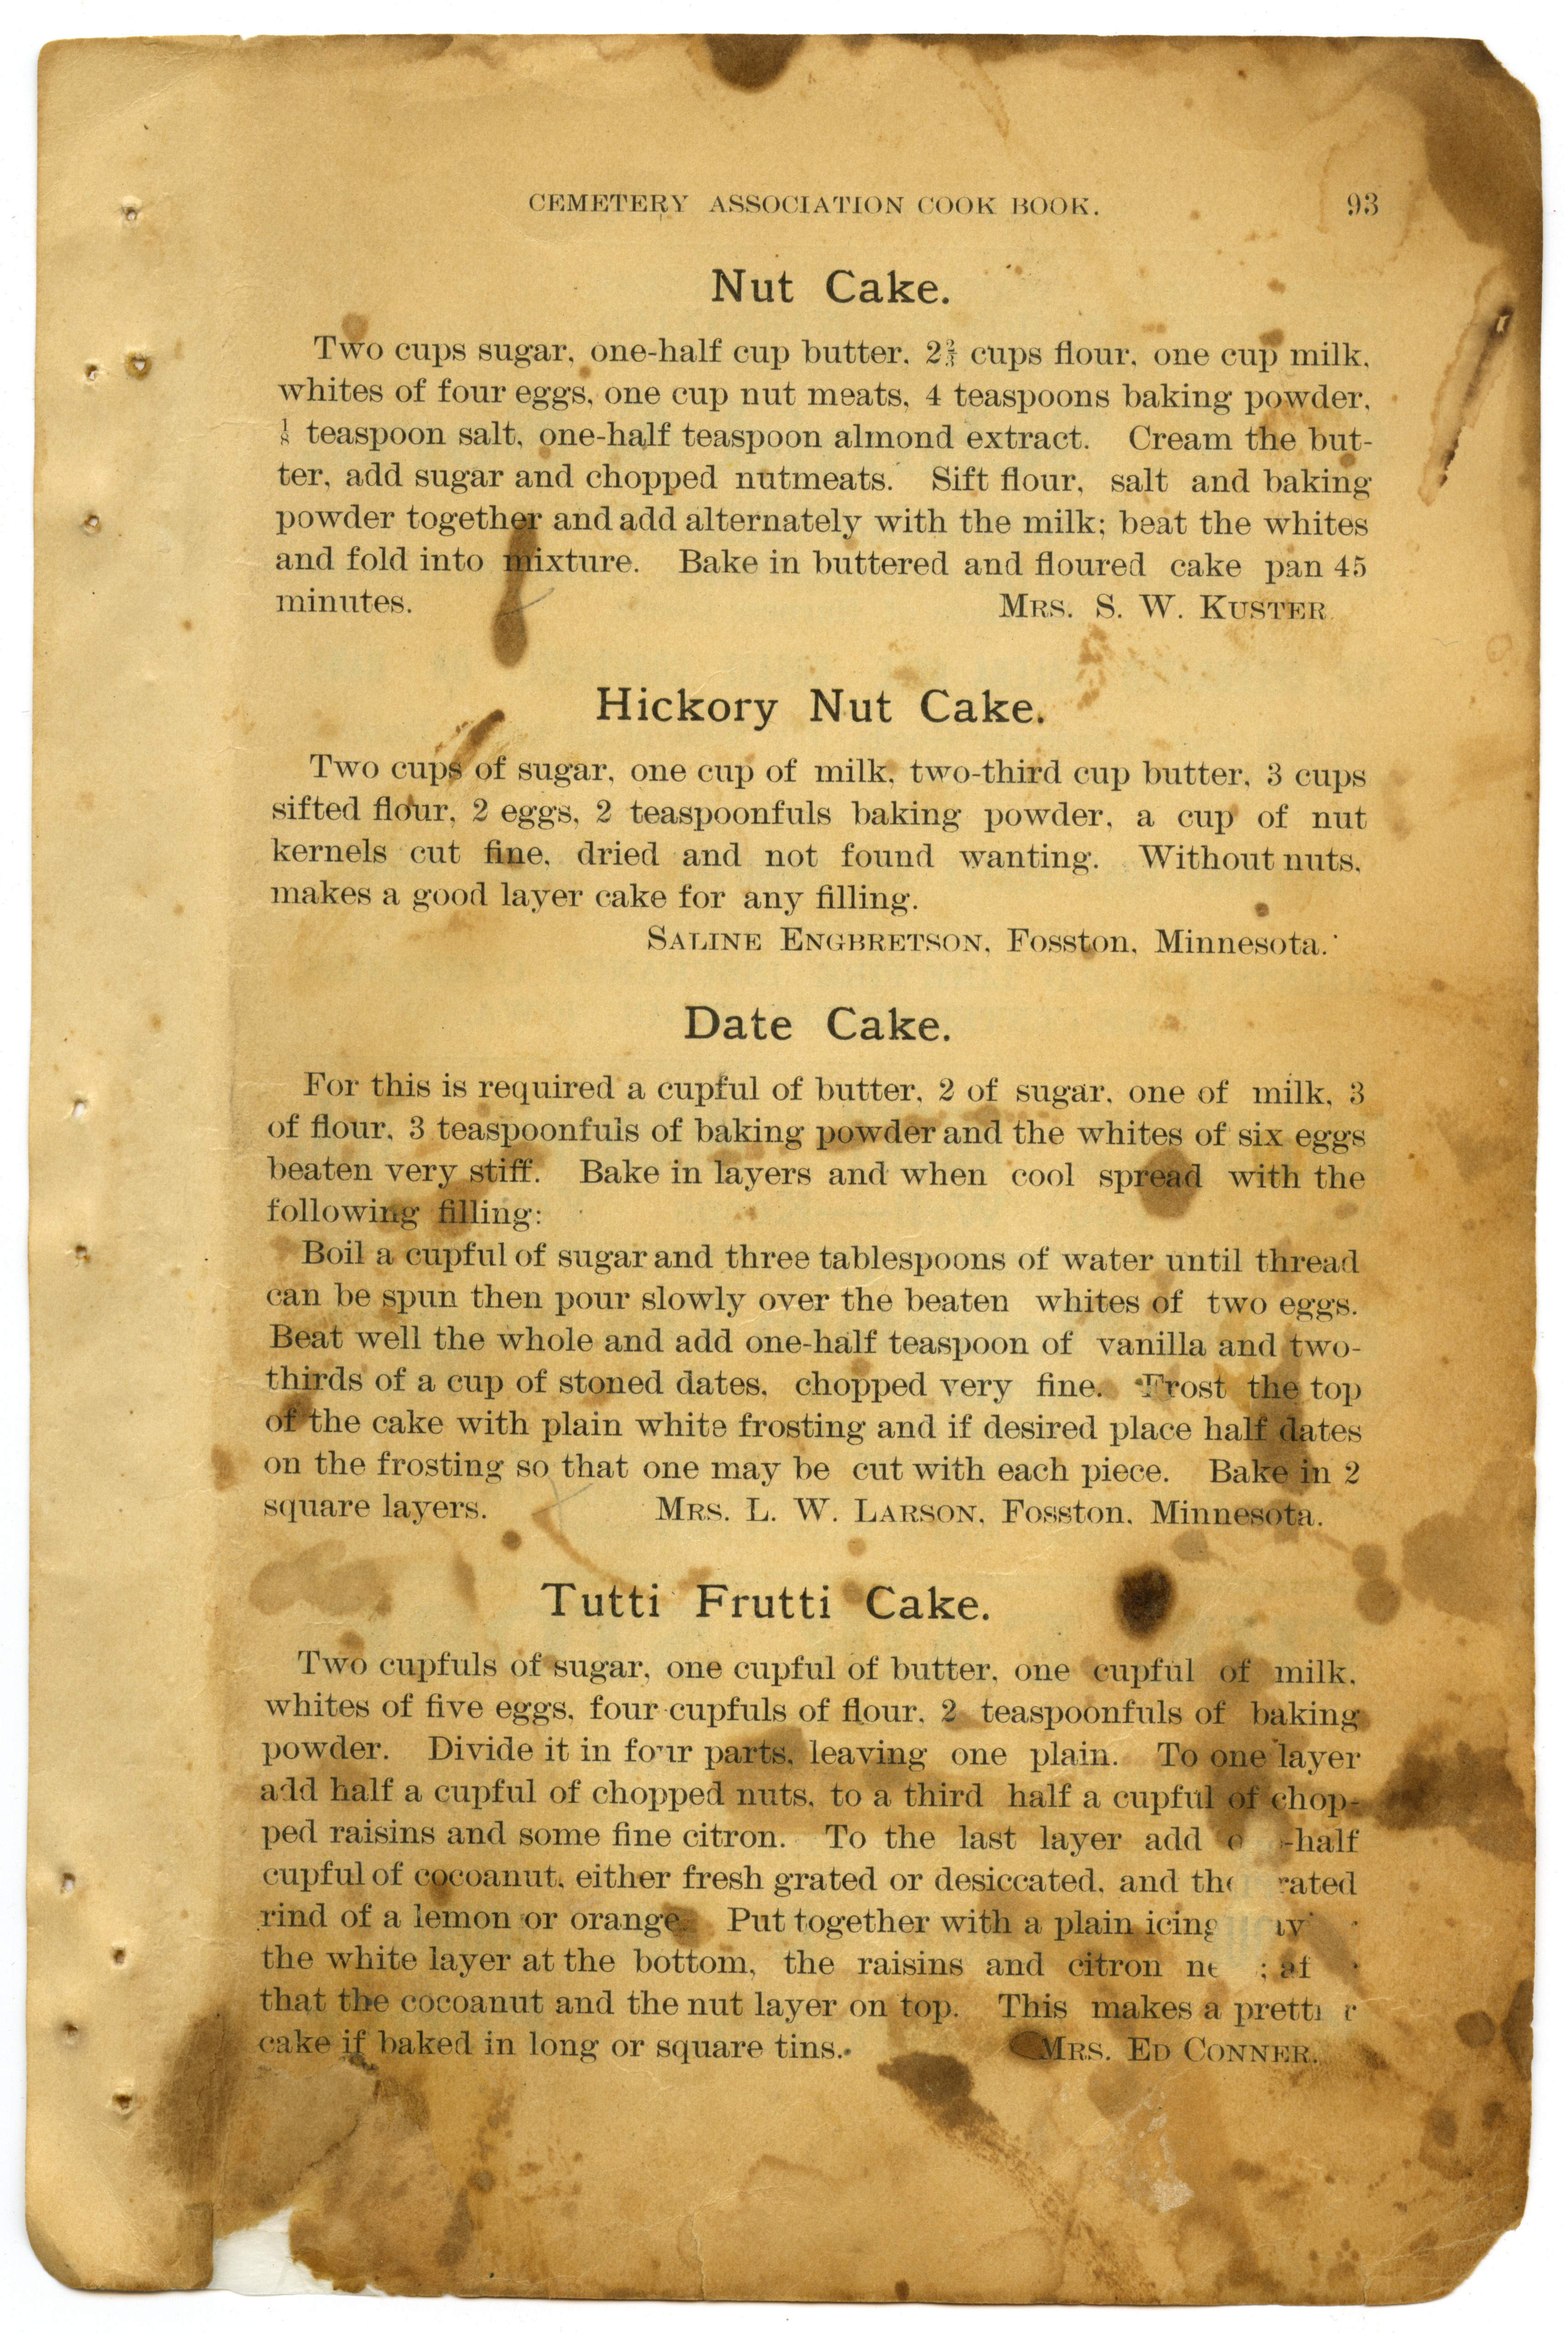 CEMETERY ASSOCIATION COOK BOOK. 93
Nut Cake.
Two cups sugar, one-half cup butter, 2⅔ cups flour, one cup milk,
whites of four eggs, one cup nut meats, 4 teaspoons baking powder,
⅛ teaspoon salt, one-half teaspoon almond extract. Cream the but-
ter, add sugar and chopped nutmeats. Sift flour, salt and baking
powder together and add alternately with the milk; beat the whites
and fold into mixture. Bake in buttered and floured cake pan 45
minutes. MRS. S. W. KUSTER
Hickory Nut Cake.
Two cups of sugar, one cup of milk, two-third cup butter, 3 cups
sifted flour, 2 eggs, 2 teaspoonfuls baking powder, a cup of nut
kernels cut fine, dried and not found wanting. Without nuts,
makes a good layer cake for any filling.
SALINE ENGBRETSON, Fosston, Minnesota.
Date Cake.
For this is required a cupful of butter, 2 of sugar, one of milk, 3
of flour, 3 teaspoonfuls of baking powder and the whites of six eggs
beaten very stiff. Bake in layers and when cool spread with the
following filling:
Boil a cupful of sugar and three tablespoons of water until thread
can be spun then pour slowly over the beaten whites of two eggs.
Beat well the whole and add one-half teaspoon of vanilla and two-
thirds of a cup of stoned dates, chopped very fine. Frost the top
of the cake with plain white frosting and if desired place half dates
on the frosting so that one may be cut with each piece. Bake in 2
square layers. MRS. L. W. LARSON, Fosston, Minnesota.
Tutti Frutti Cake.
Two cupfuls of sugar, one cupful of butter, one cupful of milk,
whites of five eggs, four cupfuls of flour, 2 teaspoonfuls of baking
powder. Divide it in four parts, leaving one plain. To one layer
add half a cupful of chopped nuts, to a third half a cupful of chop-
ped raisins and some fine citron. To the last layer add -half
cupful of cocoanut, either fresh grated or desiccated, and
rind of a lemon or orange. Put together with a plain icing
the white layer at the bottom, the raisins and citron
that the cocoanut and the nut layer on top. This makes a
cake if baked in long or square tins. MRS. ED CONNER.